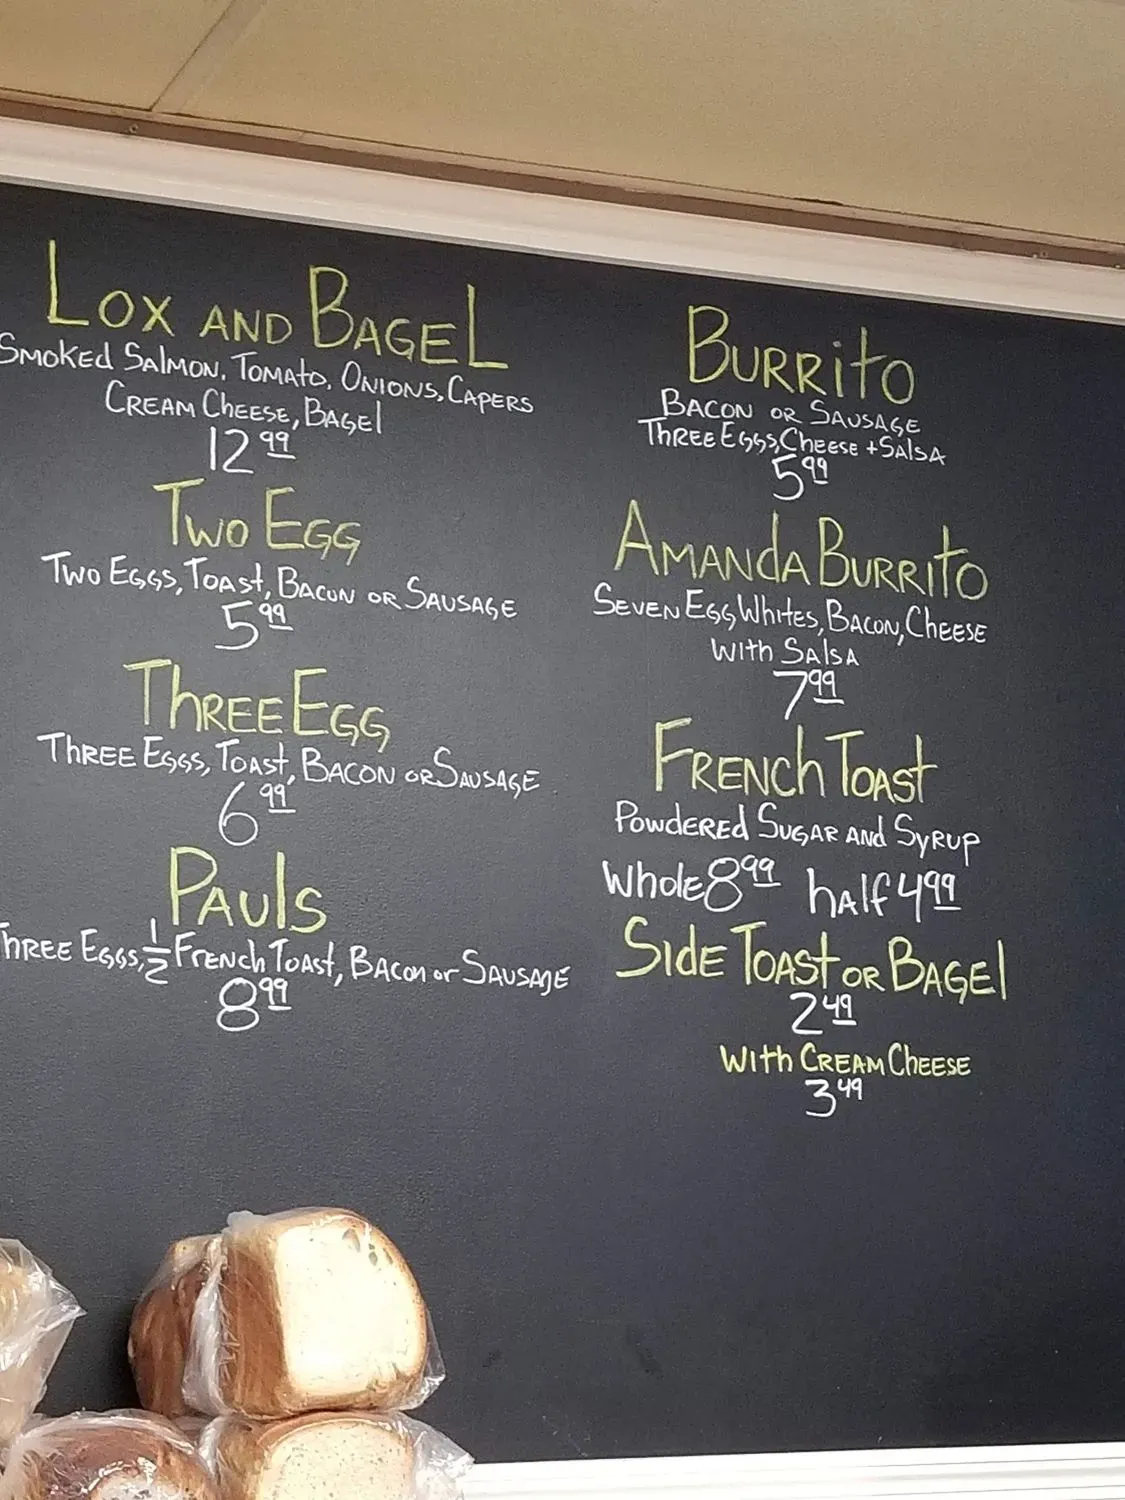 Lox and Bagel
Smoked Salmon, Tomato, Onions, Capers
Cream Cheese, Bagel
12 99
Two Egg
Two Eggs, Toast, Bacon or Sausage
5 99
Three Egg
Three Eggs, Toast, Bacon or Sausage
6 99
Pauls
Three Eggs, 1/2 French Toast, Bacon or Sausage
8 99
Burrito
Bacon or Sausage
Three Eggs, Cheese + Salsa
5 99
Amanda Burrito
Seven Egg Whites, Bacon, Cheese
with Salsa
7 99
French Toast
Powdered Sugar and Syrup
Whole 8 99 half 4 99
Side Toast or Bagel
2 49
With Cream Cheese
3 49